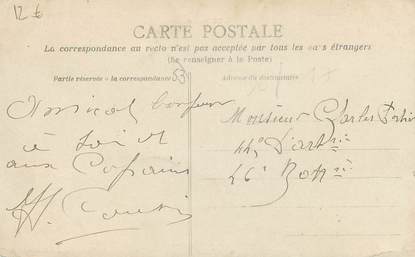 12 €
CARTE POSTALE
La correspondance au recto n'est pas acceptée par tous les pays étrangers
(Se renseigner à la Poste)
Partie réservée à la correspondance
Adresse du destinataire
Amical bonjour
à toi et
aux Copains
Monsieur Charles
44e d'art ie
26e Bat ie